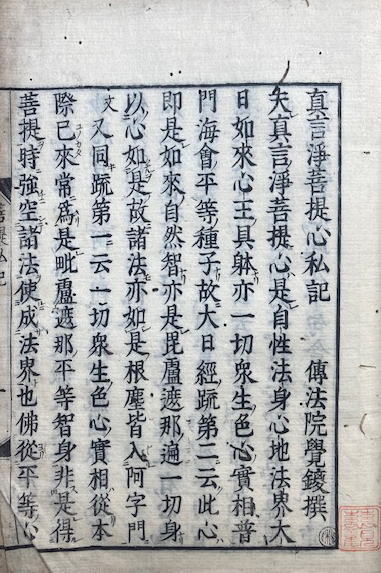 真言淨菩提心私記　傳法院覺鑁撰
夫真言淨菩提心是自性法身心地法界大
日如來心王具躰亦一切衆生色心實相普
門海會平等種子故大日經䟽第二云此心
即是如來自然智亦是毘盧遮那遍一切身
以心如是故諸法亦如是根塵皆入阿字門
文又同䟽第一云一切衆生色心實相從本
際已來常爲是毗盧遮那平等智身非是得
菩提時強空諸法使成法界也佛從平等心